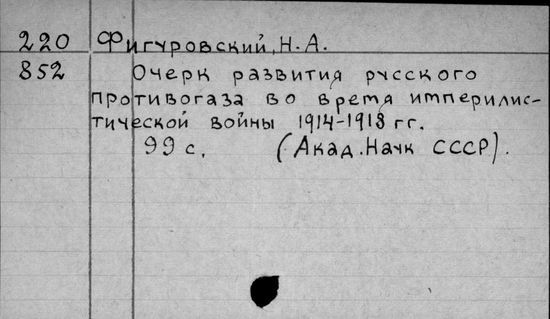 220 Фигуровский, Н.А.
852 Очерк развития русского
противогаза во время империлис-
тической войны 1914-1918 гг.
99 с. (Акад. Наук СССР).